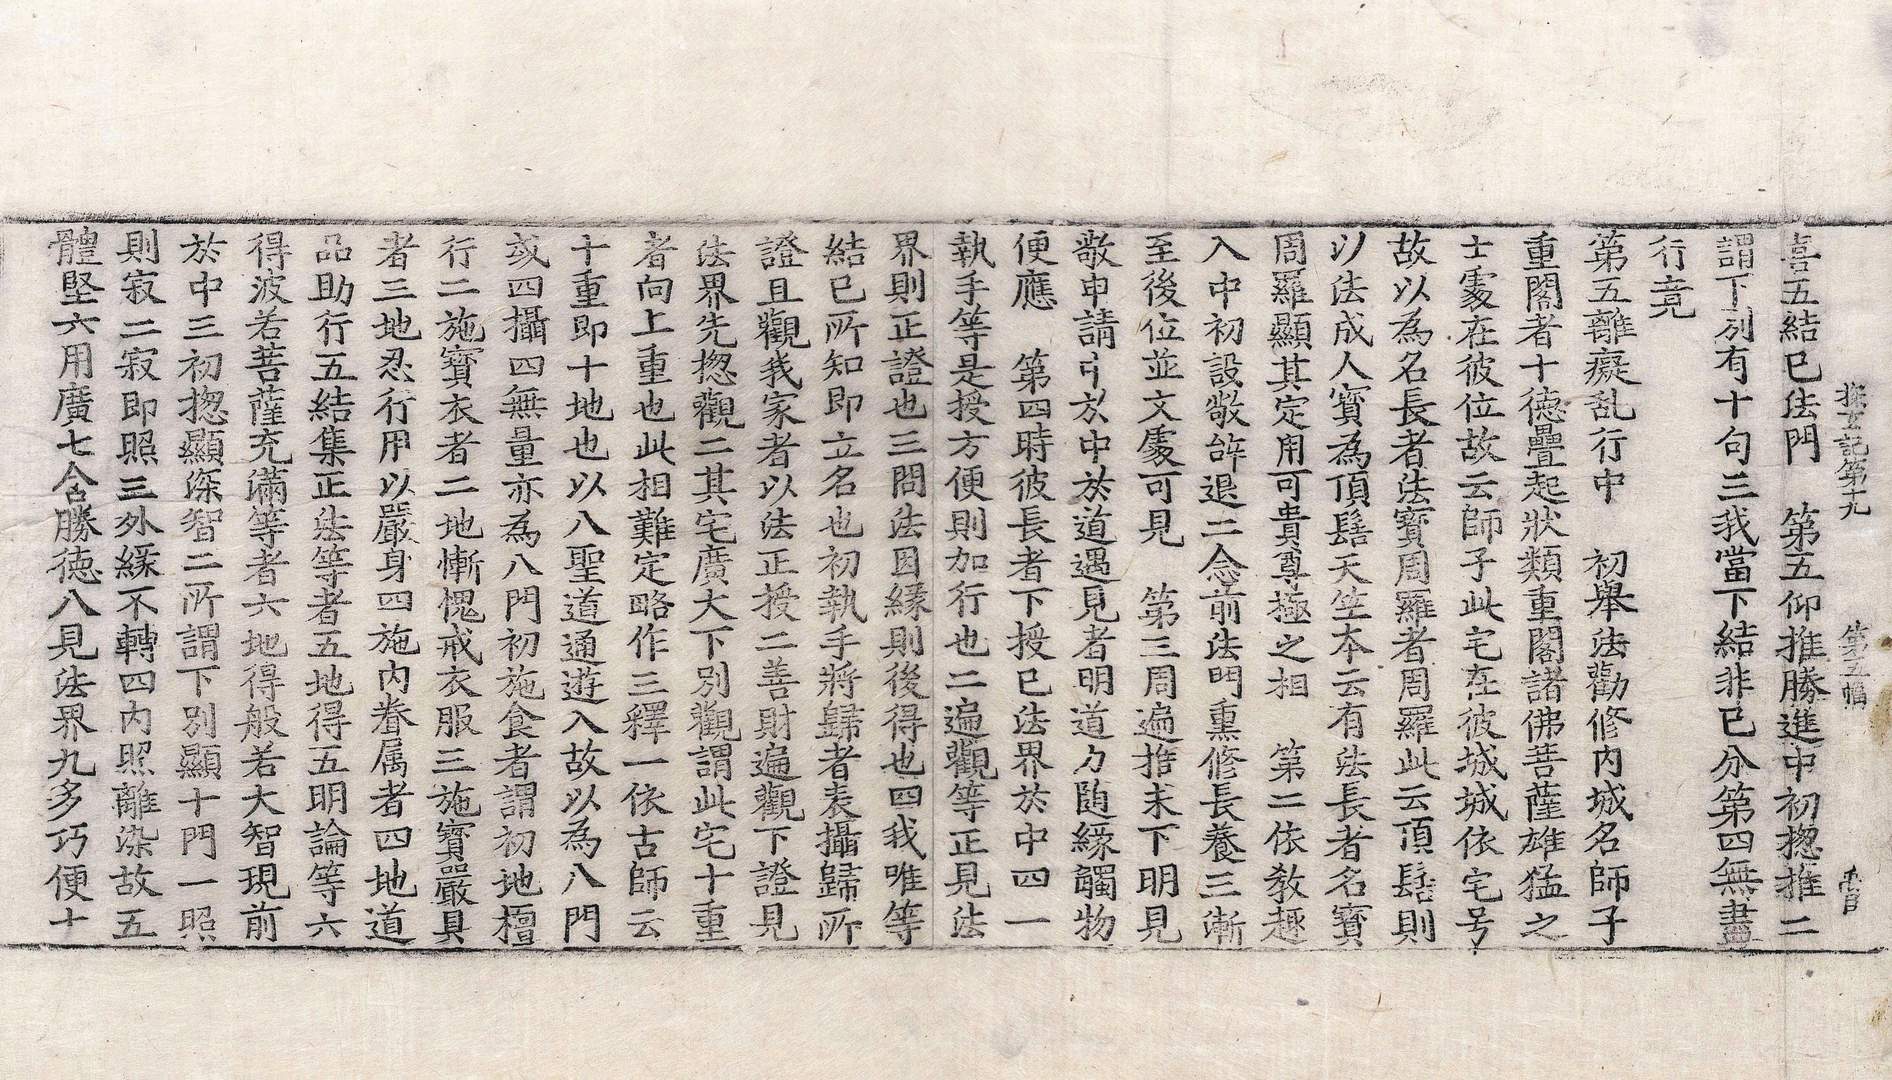 探玄記第十九 第五幅
喜五結已法門 第五仰推勝進中初揔推二
謂下別有十句三我當下結非己分第四無盡
行竟
第五離癡乱行中 初舉法勸修内城名師子
重閣者十德疊起狀類重閣諸佛菩薩雄猛之
士處在彼位故云師子此宅在彼城城依宅号
故以為名長者法寶周羅者周羅此云頂髻則
以法成人寶為頂髻天竺本云有法長者名寶
周羅顯其定用可貴尊極之相 第二依教趣
入中初設敬辝退二念前法門熏修長養三漸
至後位並文處可見 第三周遍推求下明見
敬申請引於中於道遇見者明道力随緣觸物
便應 第四時彼長者下授已法界於中四一
執手等是授方便則加行也二遍觀等正見法
界則正證也三問法因緣則後得也四我唯等
結已所知即立名也初執手將歸者表攝歸所
證且觀我家者以法正授二善財遍觀下證見
法界先揔觀二其宅廣大下別觀謂此宅十重
者向上重也此相難定略作三釋一依古師云
十重即十地也以八聖道通遊入故以為八門
或四攝四無量亦為八門初施食者謂初地檀
行二施寶衣者二地慚愧戒衣服三施寶嚴具
者三地忍行用以嚴身四施内眷属者四地道
品助行五結集正法等者五地得五明論等六
得波若菩薩充滿等者六地得般若大智現前
於中三初揔顯深智二所謂下別顯十門一照
則寂二寂即照三外緣不轉四内照離染故五
體堅六用廣七含勝德八見法界九多巧便十